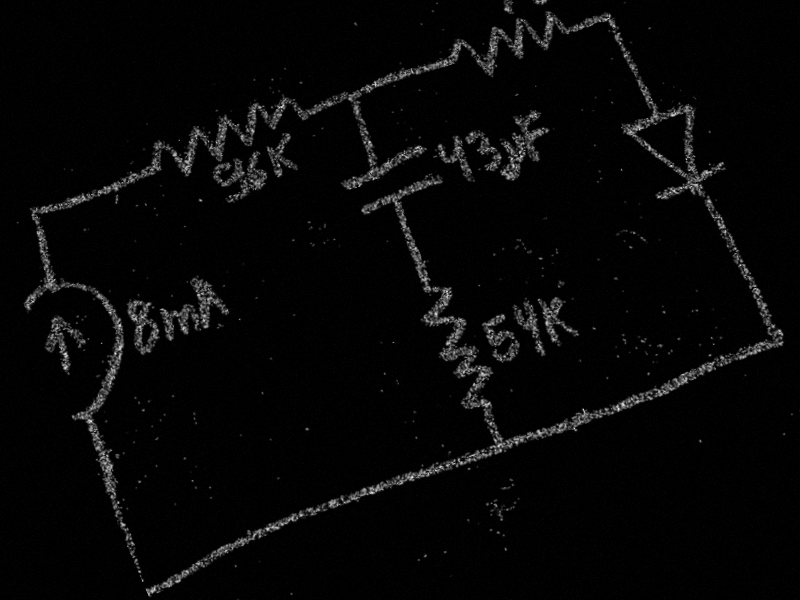 96K
43μF
8mA
54K